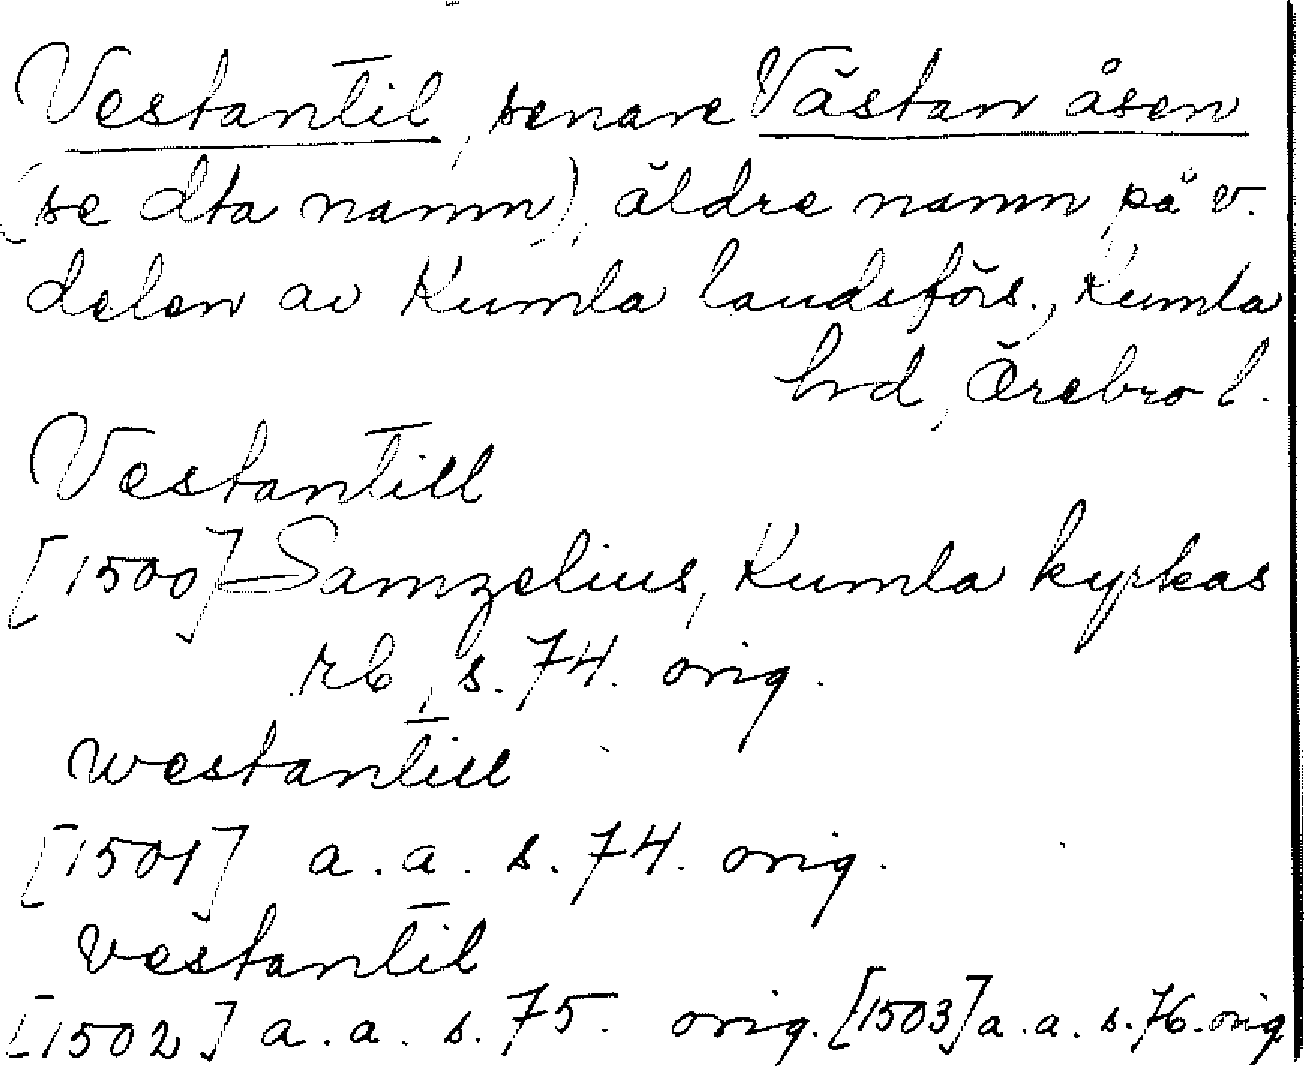 Vestantil, senare Västan åsen
(se dta namn), äldre namn på v.
delen av Kumla landsförs., Kumla
hd, Örebro l.
Vestantill
[1500] Samzelius, Kumla kyrkas
rb, s. 74. orig.
westantill
[1501] a. a. s. 74. orig.
vestantil
[1502] a. a. s. 75. orig. [1503] a. a. s. 76. orig.